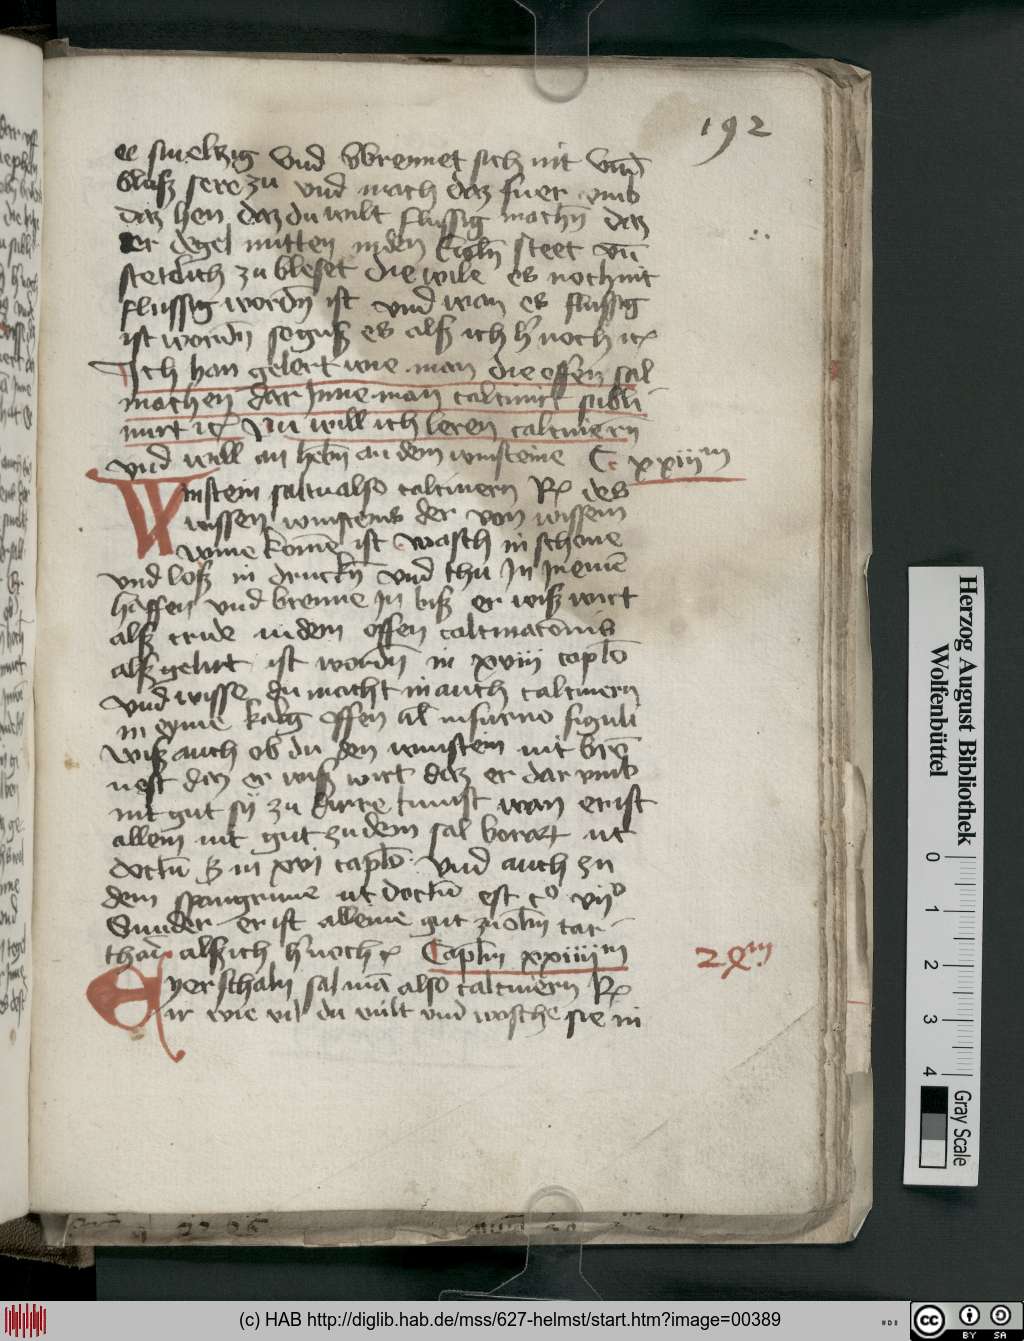 192
es smeltzig vnd vbrennet sich nit vnd
blasz sere zu vnd mach daz fuer vmb
daz hen daz du wilt flussig machn daz
er degel mitten in den koln steet vn
stetclich zu bleset die wile es noch nit
flussig wordn ist vnd wan es flussig
ist wordn so gusz es alsz ich h'noch etc
Ich han gelert wie man die offen sal
machen dar Inne man calcinirt subli
mirt etc Nu will ich leren calcinern
vnd will an hebn an dem winsteine C. xxiiim
Winstein saltu also calcinern Rx des
wissen winsteins der von wissem
wine komē ist wasch in schone
vnd losz in druckn vnd thu In in einē
haffen vnd brenne In bisz er wisz wirt
alsz cride in dem offen calcinacōnis
alsz gelirt ist wordn in xviii caplo
vnd wisse du macht in auch calcinern
in eyme kalg offen al in furno figuli
Wisz auch ob du den winstein nit brē
nest dan er wisz wirt daz er dar vmb
nit gut sy zu dirre kunst wan er ist
allein nit gut zu dem sal borax ut
doctū in xvi caplo vnd auch zu
dem spangrune ut doctū est co viio
Sunder er ist alleine gut zu
alsz ich h'noch etc Caplm xxiiiim
2Xm
Eyerschaln sal mā also calcinern Rx
ir wie vil du wilt vnd wosche sie in
Herzog August Bibliothek
Wolfenbüttel
0 1 2 3 4
Gray Scale
(c) HAB http://diglib.hab.de/mss/627-helmst/start.htm?image=00389
cc BY SA